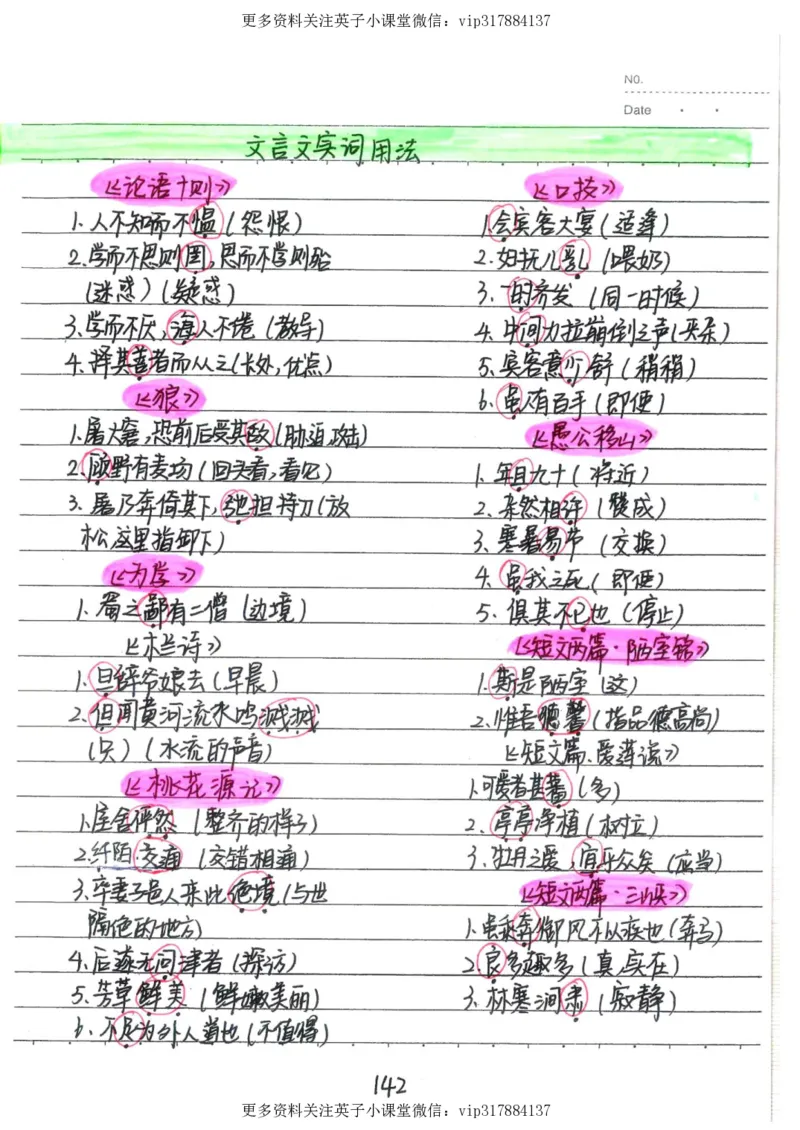 更多资料关注英子小课堂微信：vip317884137
NO.
Date
文言文实词用法
《论语十则》
1.人不知而不愠(怨恨)
2.学而不思则罔,思而不学则殆
(迷惑)(疑惑)
3.学而不厌,诲人不倦(教导)
4.择其善者而从之(长处,优点)
《狼》
1.屠大窘,恐前后受其敌(胁迫,攻击)
2.顾野有麦场(回头看,看见)
3.屠乃奔倚其下,弛担持刀(放
松,这里指卸下)
《为学》
1.蜀之鄙有二僧(边境)
《木兰诗》
1.旦辞爷娘去(早晨)
2.但闻黄河流水鸣溅溅
(只)(水流的声音)
《桃花源记》
1.屋舍俨然(整齐的样子)
2.阡陌交通(交错相通)
3.率妻子邑人来此绝境(与世
隔绝的地方)
4.后遂无问津者(探访)
5.芳草鲜美(鲜嫩美丽)
6.不足为外人道也(不值得)
《口技》
1.会宾客大宴(适逢)
2.妇抚儿乳(喂奶)
3.一时齐发(同一时候)
4.中间力拉崩倒之声(夹杂)
5.宾客意少舒(稍稍)
6.虽人有百手(即使)
《愚公移山》
1.年且九十(将近)
2.杂然相许(赞成)
3.寒暑易节(交换)
4.虽我之死(即使)
5.惧其不已也(停止)
《短文两篇·陋室铭》
1.斯是陋室(这)
2.惟吾德馨(指品德高尚)
《短文篇·爱莲说》
1.可爱者甚蕃(多)
2.亭亭净植(树立)
3.牡丹之爱,宜乎众矣(应当)
《短文两篇·三峡》
1.虽乘奔御风不以疾也(奔马)
2.良多趣多(真,实在)
3.林寒涧肃(寂静)
142
更多资料关注英子小课堂微信：vip317884137